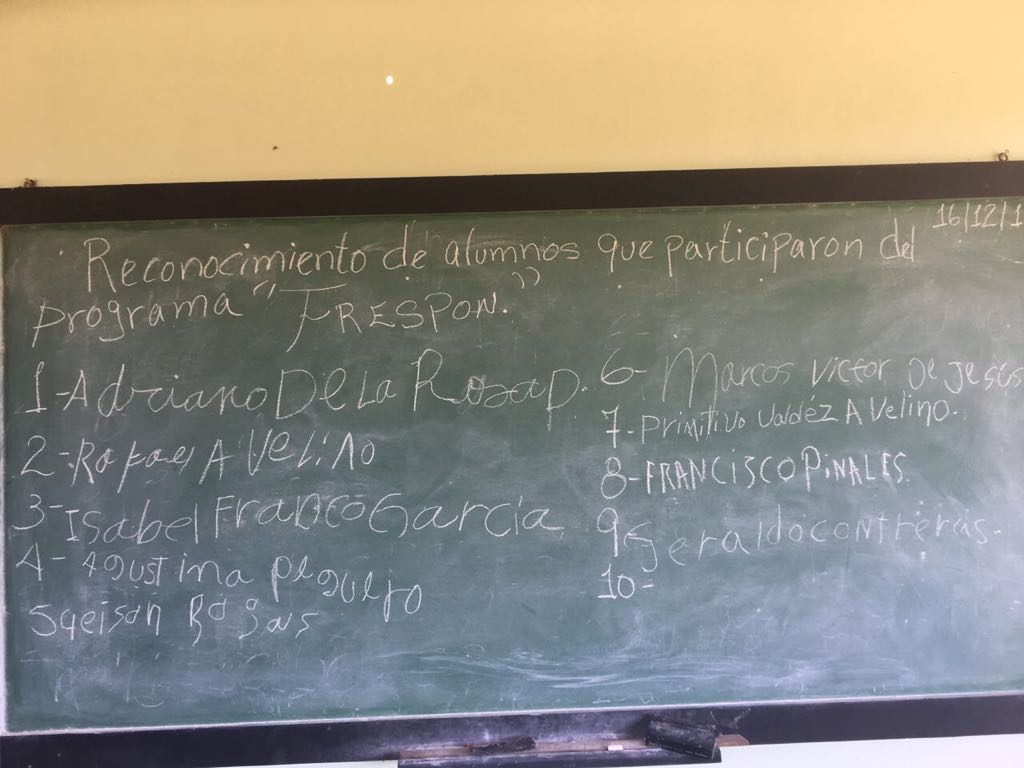 16/12/1
Reconocimiento de alumnos que participaron del
programa "FRESPON."
1-Adriano De La Rosa D.
2-Rafael AVeLiNo
3-Isabel Franco García
4-Agustina
5
6-Marcos victor De Jesús
7-Primitivo Valdéz AVelino.
8-FRANCISCO PiNALES.
9 Geraldo contreras.
10-